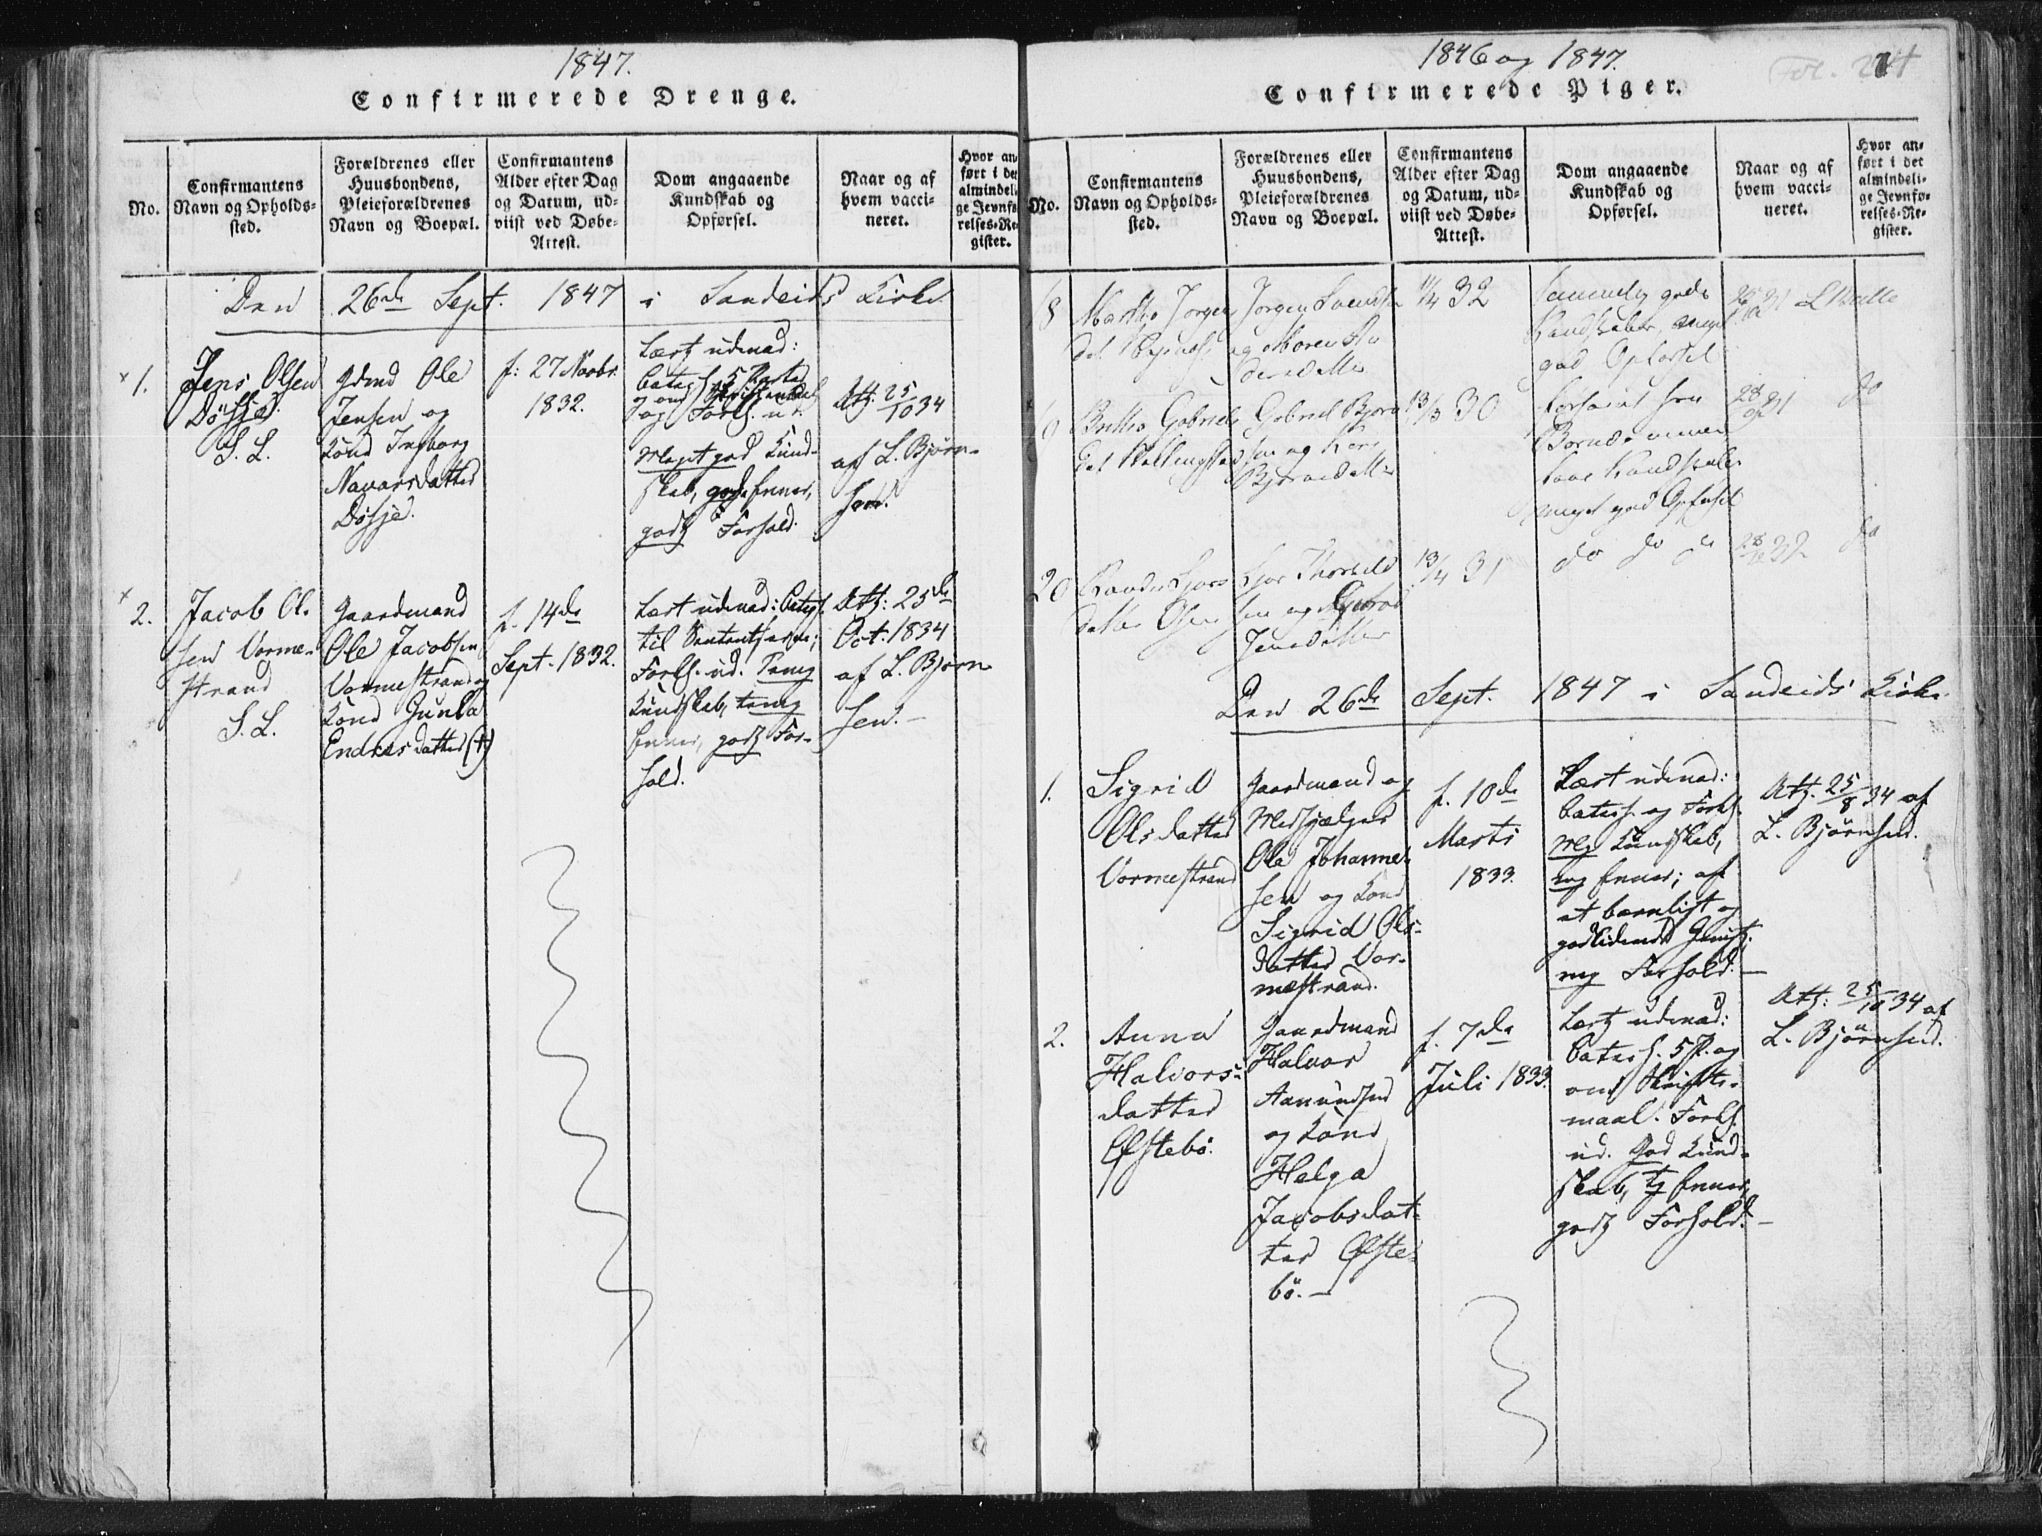 1847.
Confirmerede Drenge.
No.
Confirmantens
Navn og Opholds-
sted.
Forældrenes eller
Huusbondens,
Pleieforældrenes
Navn og Boepæl.
Confirmantens
Alder efter Dag
og Datum, ud-
viist ved Døbe-
Attest.
Dom angaaende
Kundskab og
Opførsel.
Naar og af
hvem vacci-
neret.
Hvor an-
ført i det
almindeli-
ge Jevnfø-
relses-Re-
gister.
Den 26de Sept. 1847 i Sandeids Kirke
1.
Jens Olsen
Døsje.
S. L.
Gdmd Ole
Jensen og
Kond Ingborg
Navarsdatter
Døsje.
f: 27 Novbr.
1832.
Lært udenad:
og Forkl. ud.
Meget god Kund-
skab, gode Evner,
godt Forhold.
Att: 25/10 34
af L. Bjørn-
sen.
2.
Jacob Ol-
sen Vorme-
strand
S. L.
Gaardmand
Ole Jacobsen
Vormestrand og
Kond Gunla
Endresdatter (+)
f. 14de
Sept. 1832.
Lært udenad:
Forkl. ud. Temg
Kundskab, temg
Evner, godt For-
hold.
Att: 25de
Oct. 1834
af L. Bjørn-
sen.-
1846 og 1847.
Confirmerede Piger.
Fol.
No.
Confirmantens
Navn og Opholds-
sted.
Forældrenes eller
Huusbondens,
Pleieforældrenes
Navn og Boepæl.
Confirmantens
Alder efter Dag
og Datum, ud-
viist ved Døbe-
Attest.
Dom angaaende
Kundskab og
Opførsel.
Naar og af
hvem vacci-
neret.
Hvor an-
ført i det
almindeli-
ge Jevnfø-
relses-Re-
gister.
18
Martha Jorgens
Jorgen
og Maren
/4 32
temmelig gode
Kundskaber, meget
god Opførsel
Gabriels
Gabriel Bjorn
sen og Kari
13/3 30
Kundskaber
meget god Opførsel
do
20
datter Olsen
Thorkild
sen og
13/4 31
do do do
32
do
Den 26de Sept. 1847 i Sandeids Kirke
1.
Sigrid
Olsdatter
Vormestrand
Gaardmand og
Medhjælper
Ole Johanne-
sen og Kond
Sigrid Ols-
datter Vor-
mestrand.
f. 10de
Marts
1833.
Lært udenad:
Catech. og Forkl.
Mg Kundskab,
mg Evner; af
et barnligt og
godlidende Gemyt;
mg Forhold.-
Att. 25/8 34 af
L. Bjørnsen.
2.
Anna
Halvors-
datter
Øfstebø.
Gaardmand
Halvor
Aamundsen
og Kond
Helga
Jacobsdat-
ter Øfste-
bø.-
f. 7de
Juli 1833.
Lært udenad:
Catech. 5 P. og
om Skrifte-
maal. Forkl.
ud. God Kund-
skab, tg Evner,
godt Forhold.-
Att: 25/10 34 af
L. Bjørnsen.